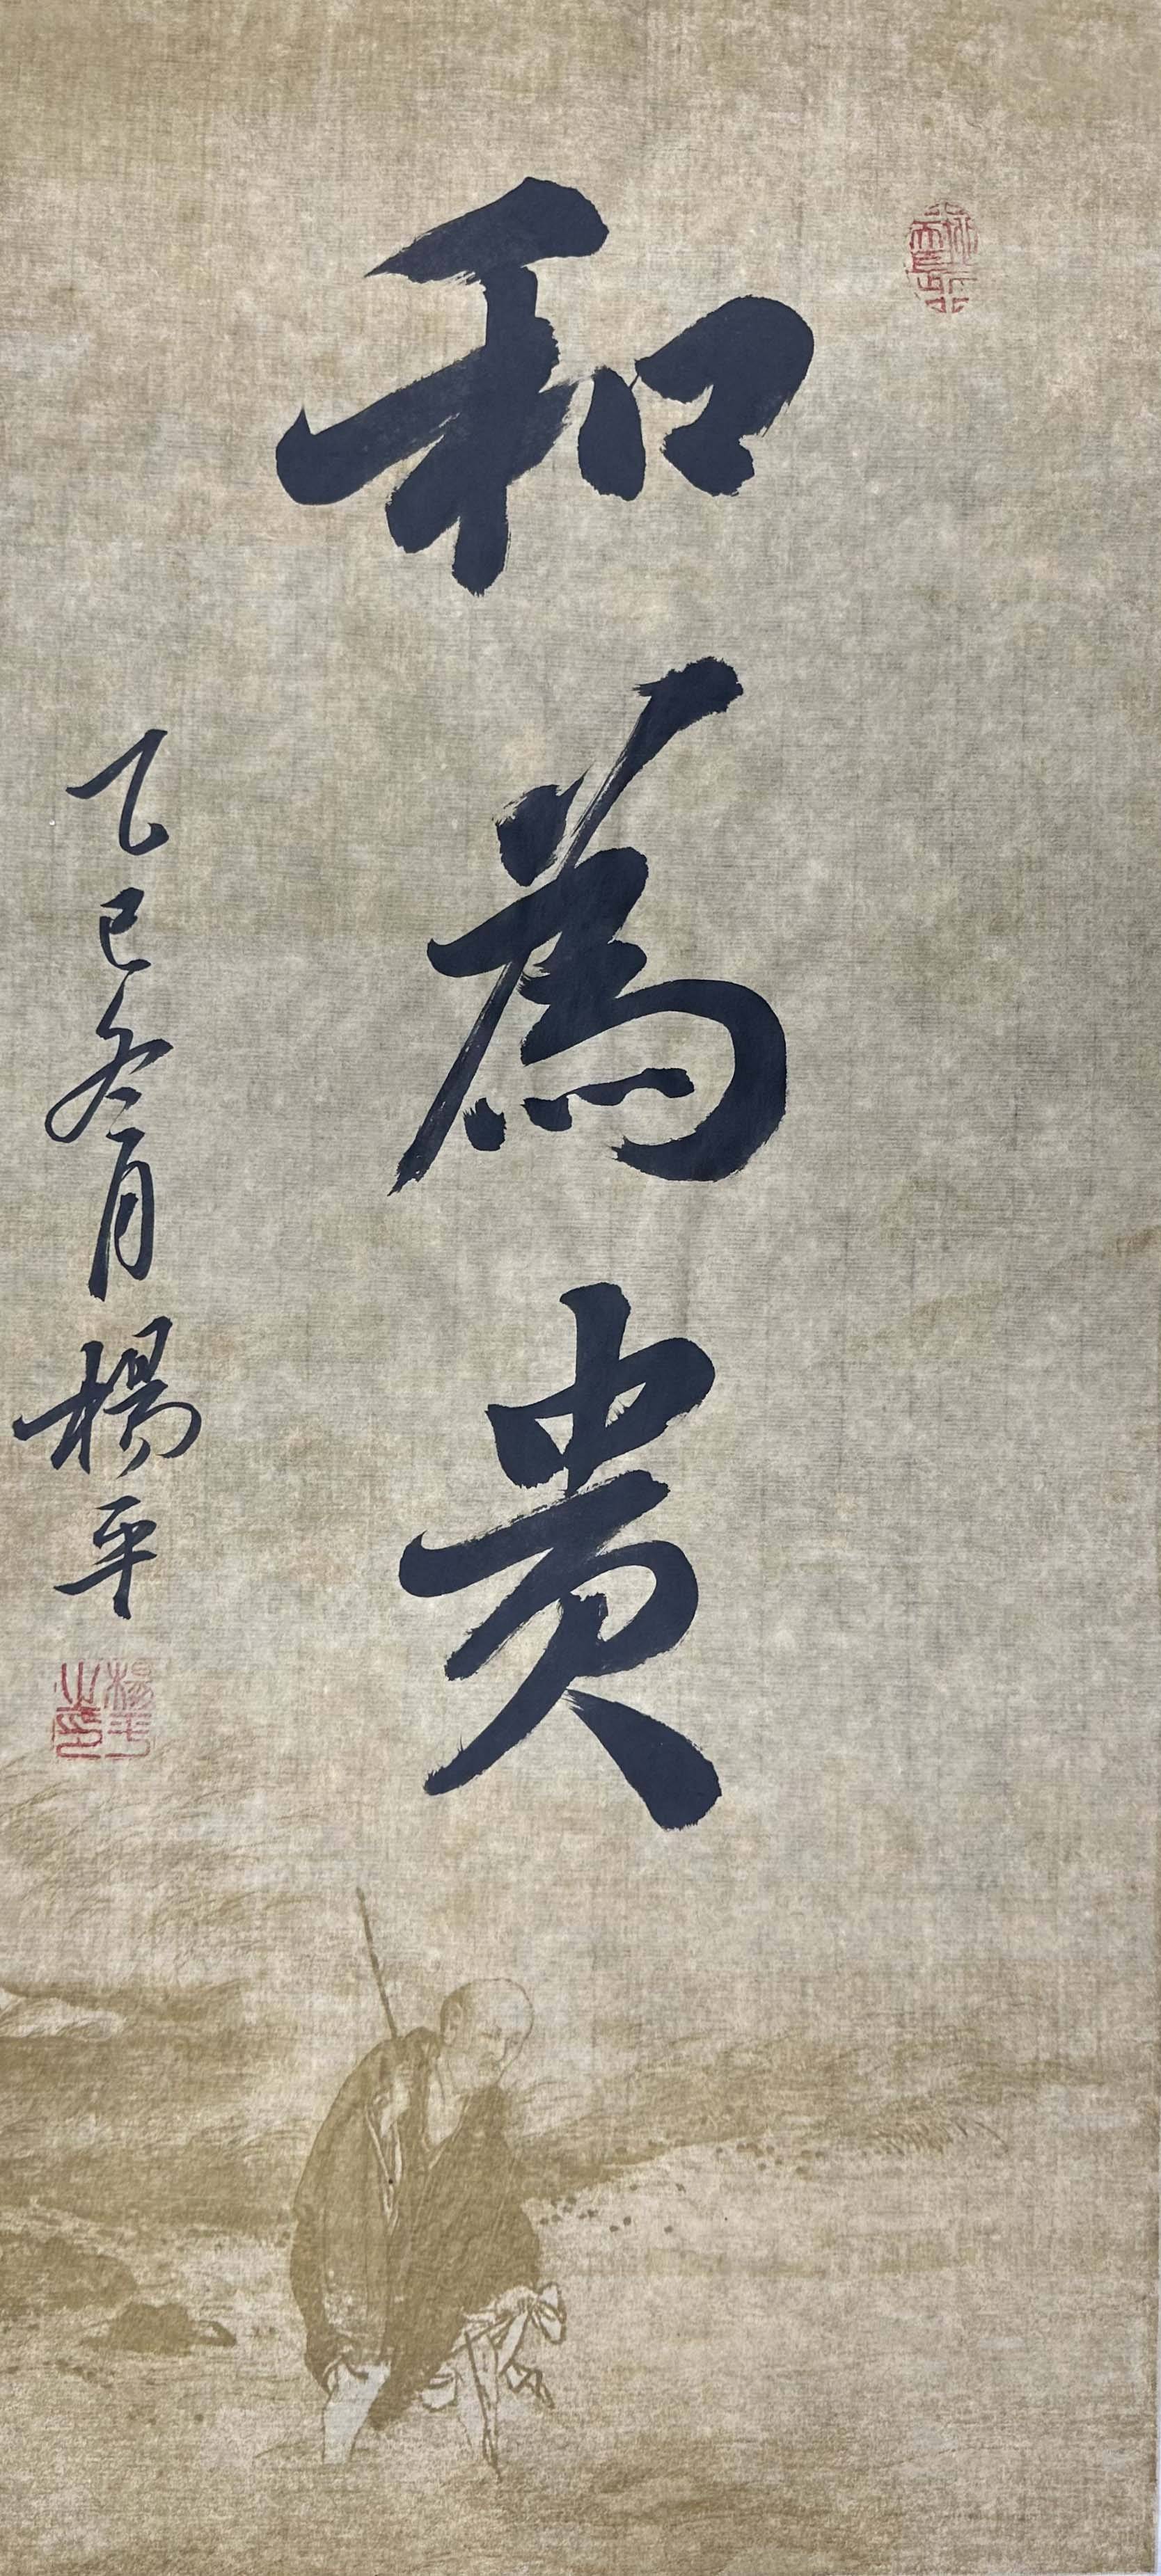 和為貴
乙巳冬月楊平
楊平之印